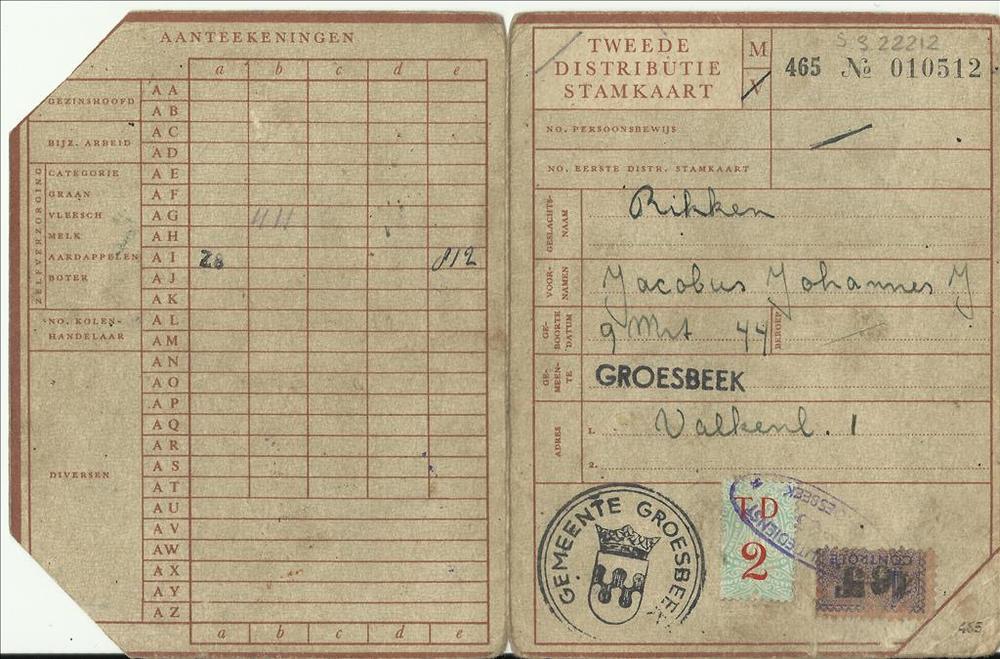 AANTEEKENINGEN
a b c d e
GEZINSHOOFD
AA
AB
BIJZ. ARBEID
AC
AD
ZELFVERZORGING
CATEGORIE AE
GRAAN AF
VLEESCH AG
MELK AH
AARDAPPELEN AI 28 812
BOTER AJ
AK
NO. KOLEN-
HANDELAAR
AL
AM
AN
AO
AP
AQ
AR
AS
DIVERSEN
AT
AU
AV
AW
AX
AY
AZ
a b c d e
TWEEDE
DISTRIBUTIE
STAMKAART
M
V
S 3 22212
465 No 010512
NO. PERSOONSBEWIJS
NO. EERSTE DISTR. STAMKAART
GESLACHTS-
NAAM
Rikken
VOOR-
NAMEN
Jacobus Johannes J
GE-
BOORTE
DATUM
9 Mrt 44
BEROEP
GE-
MEEN-
TE
GROESBEEK
ADRES
1. Valkenl. 1
2.
GEMEENTE GROESBEEK
TD
2
ESBEEK
CONTROLE
465